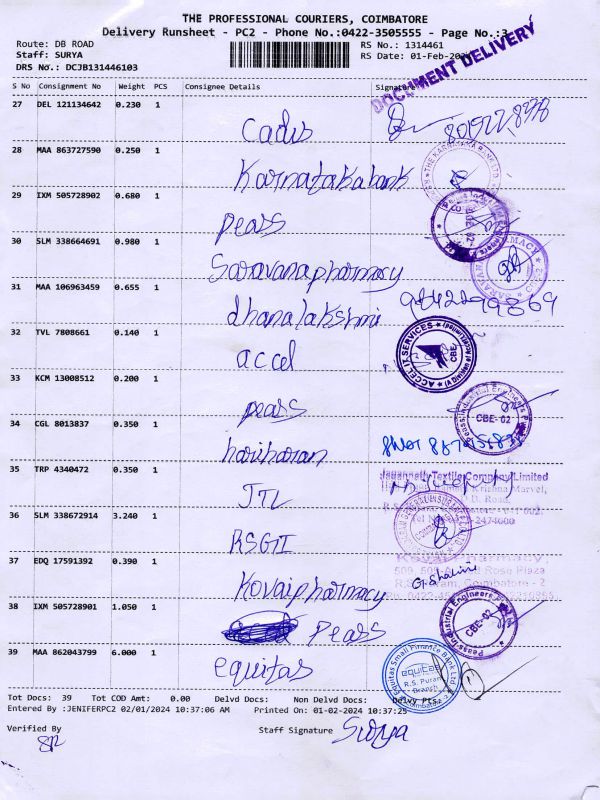 THE PROFESSIONAL COURIERS, COIMBATORE
Delivery Runsheet - PC2 - Phone No.:0422-3505555 - Page No.:3
Route: DB ROAD
RS No.: 1314461
Staff: SURYA
RS Date: 01-Feb-2024
DRS No.: DCJB131446103
DOCUMENT DELIVERY
S No Consignment No Weight PCS Consignee Details Signature
27 DEL 121134642 0.230 1
Cadis
28 MAA 863727590 0.250 1
Karnataka bank
29 IXM 505728902 0.680 1
peass
30 SLM 338664691 0.980 1
Saravana pharmacy
31 MAA 106963459 0.655 1
dhanalakshmi
32 TVL 7808661 0.140 1
accel
ACCEL IT SERVICES
CBE
33 KCM 13008512 0.200 1
peass
CBE-02
34 CGL 8013837 0.350 1
hariharan
35 TRP 4340472 0.350 1
JTL
Textile Company Limited
36 SLM 338672914 3.240 1
RSGII
37 EDQ 17591392 0.390 1
Kovai pharmacy
G. Shalini
R.S. Puram, Coimbatore - 2
38 IXM 505728901 1.050 1
Peass
Peass Industrial Engineers
CBE-02
39 MAA 862043799 6.000 1
equitas
Equitas Small Finance Bank Ltd
equitas
R.S. Puram
Branch
Tot Docs: 39 Tot COD Amt: 0.00 Delvd Docs: Non Delvd Docs: Delvy Pts.:
Entered By :JENIFERPC2 02/01/2024 10:37:06 AM Printed On: 01-02-2024 10:37:25
Verified By Staff Signature Surya